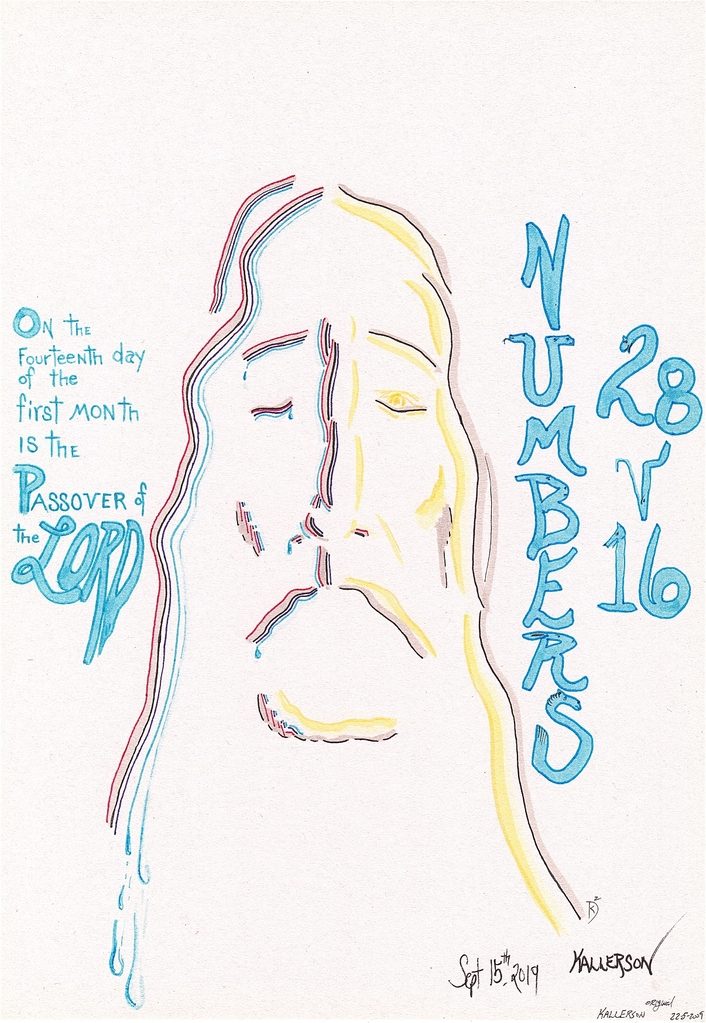 On the
Fourteenth day
of the
first Month
is the
Passover of
the LORD
NUMBERS
28
v
16
Sept 15th, 2019
KALLERSON
original
KALLERSON 22-5-2009